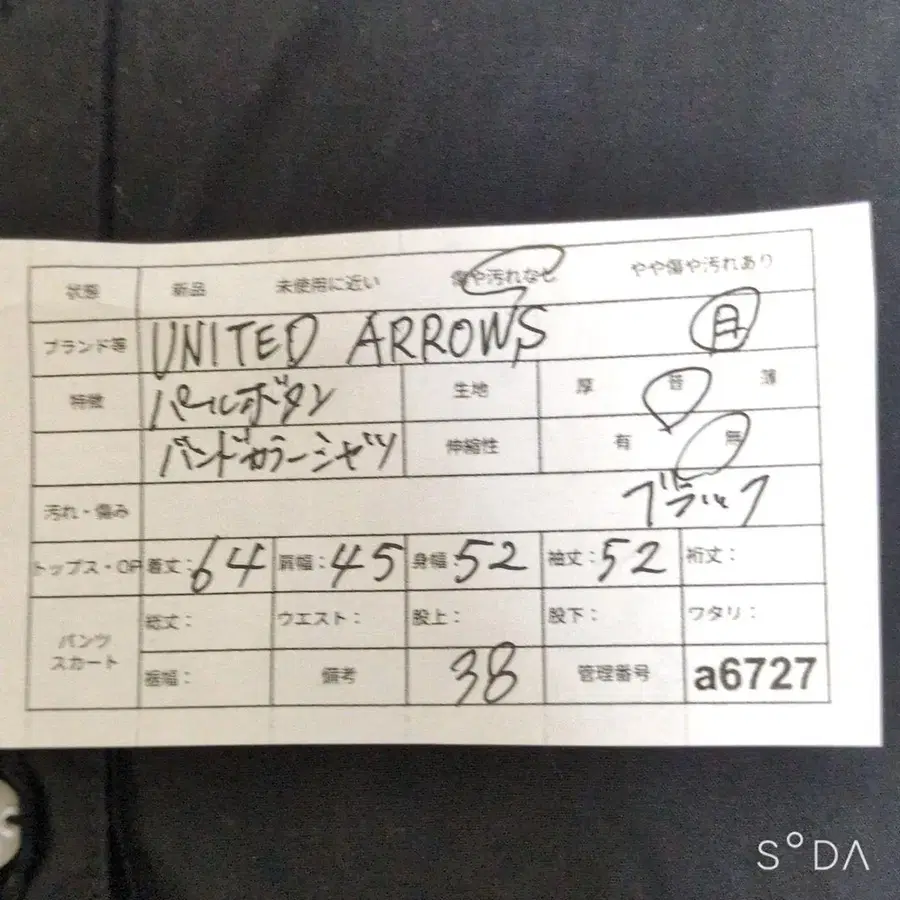 状態 新品 未使用に近い 傷や汚れなし やや傷や汚れあり
ブランド等 UNITED ARROWS
特徴 パールボタン 生地 厚 普 薄
バンドカラーシャツ 伸縮性 有 無
汚れ・傷み ブラック
トップス・OP 着丈:64 肩幅:45 身幅:52 袖丈:52 裄丈:
パンツ スカート 総丈: ウエスト: 股上: 股下: ワタリ:
裾幅: 備考 38 管理番号 a6727
SODA